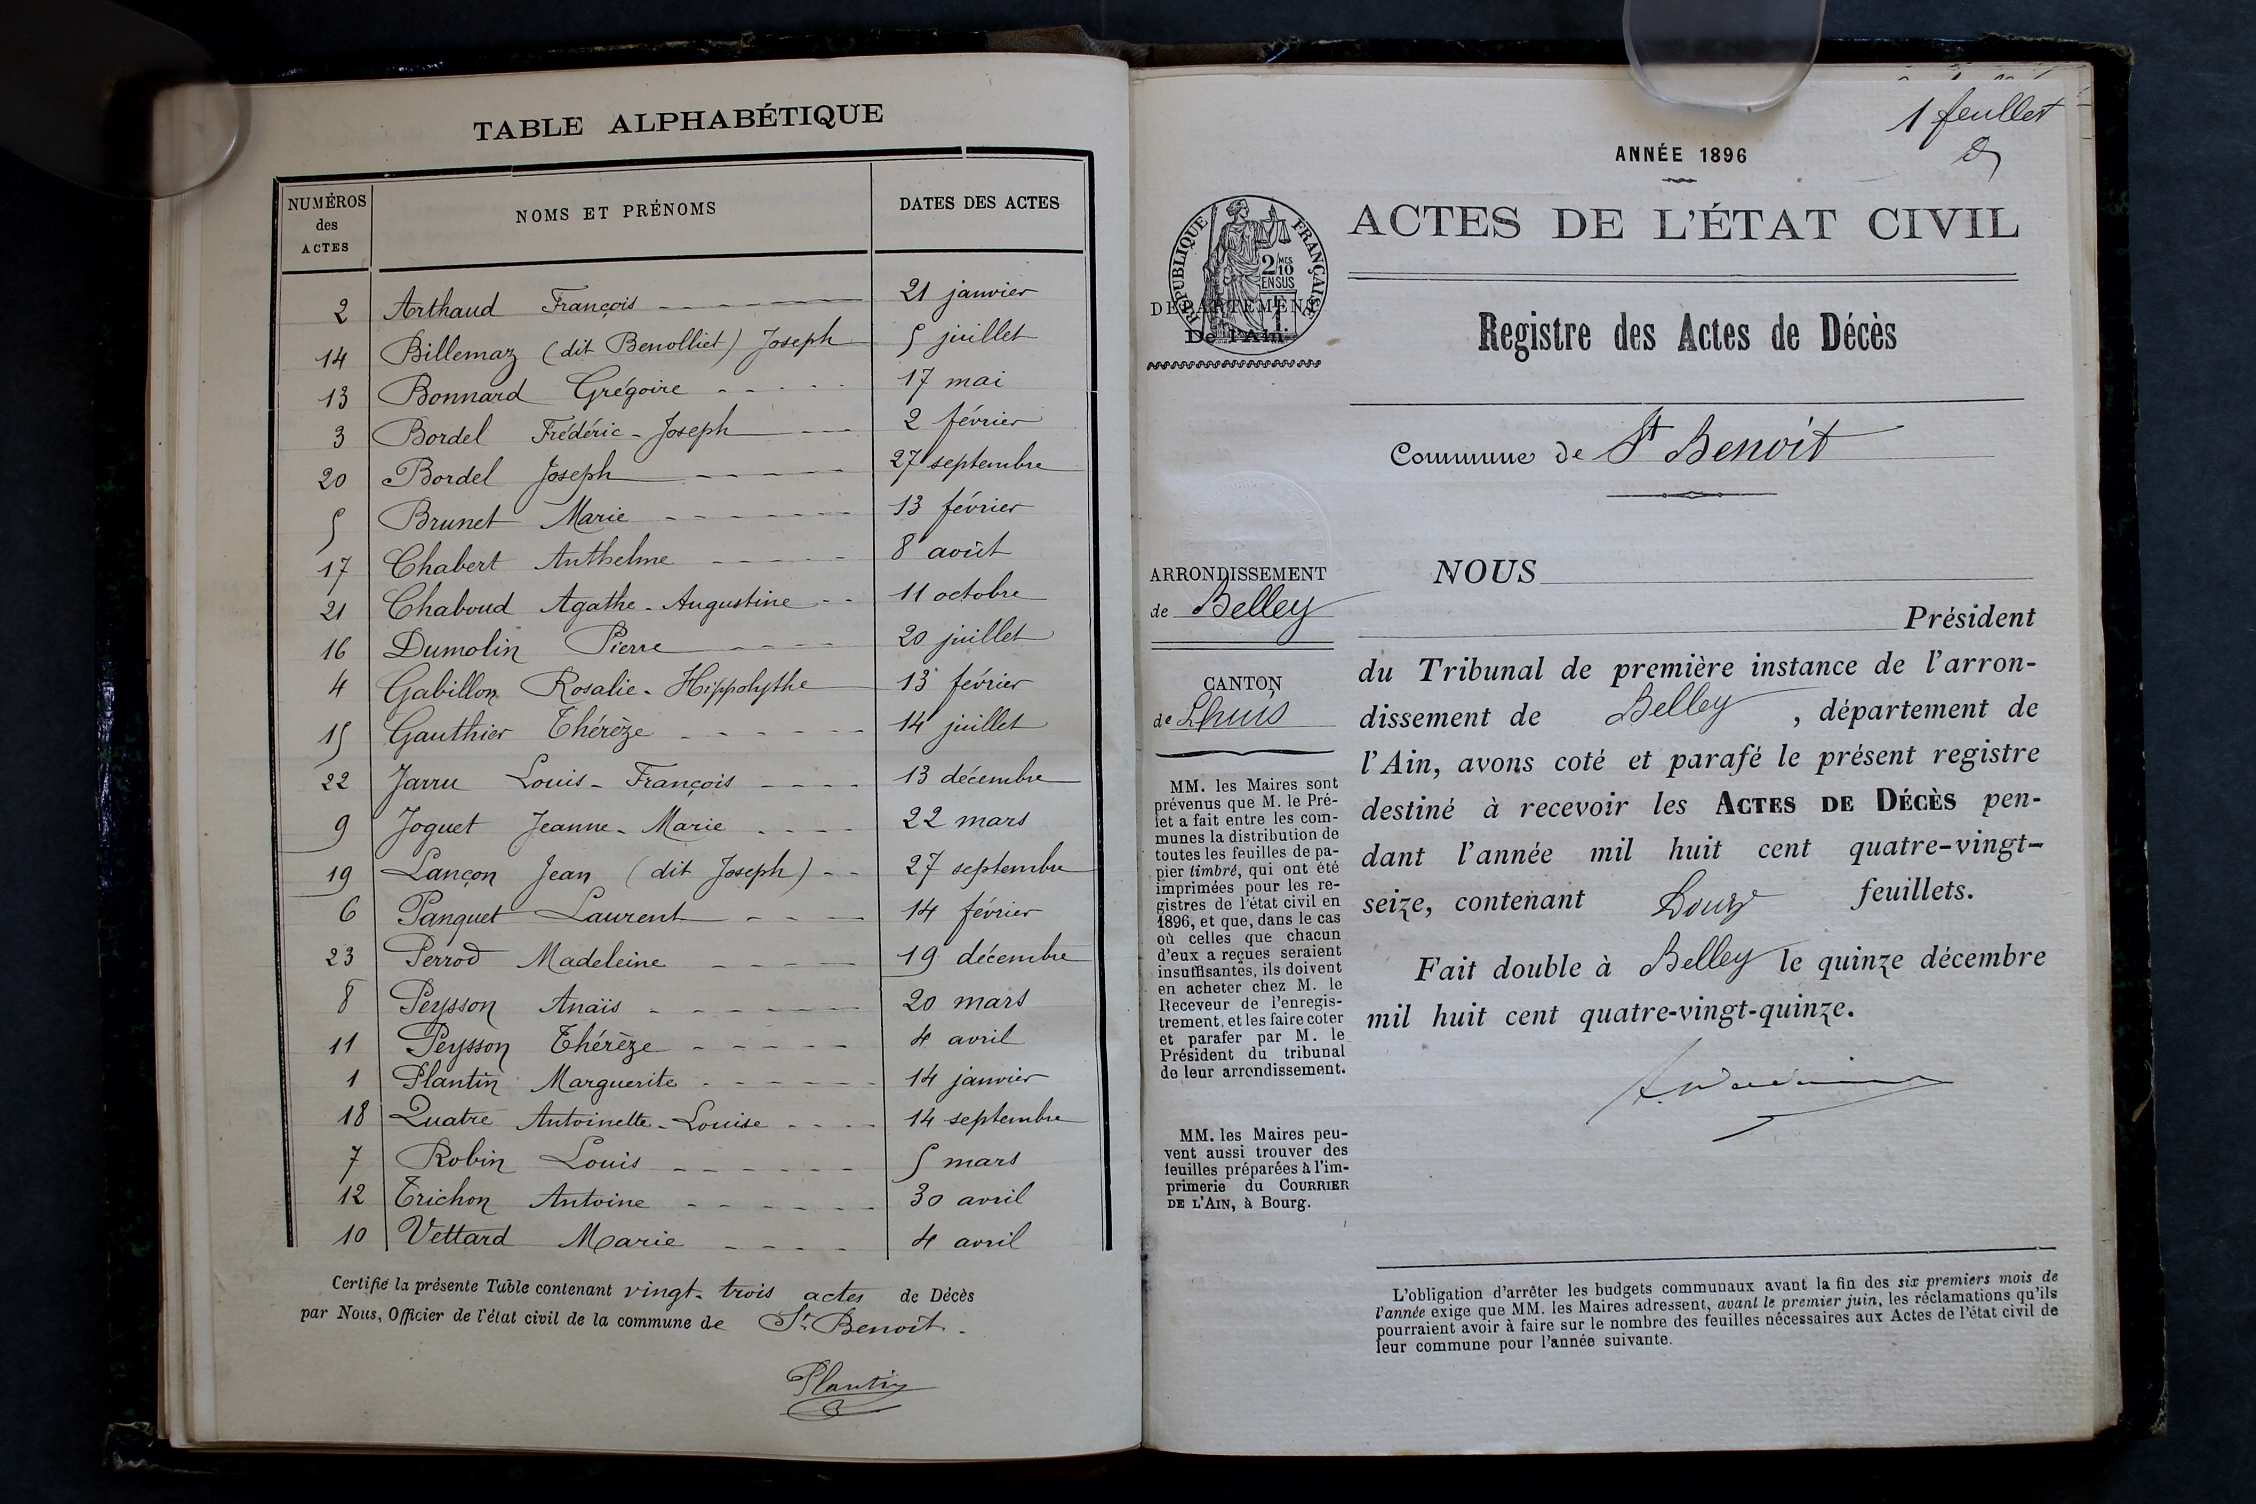 TABLE ALPHABÉTIQUE
NUMÉROS des ACTES NOMS ET PRÉNOMS DATES DES ACTES
2 Arthaud François 21 janvier
14 Billemaz (dit Benolliet) Joseph 5 juillet
13 Bonnard Grégoire 17 mai
3 Bordel Frédéric-Joseph 2 février
20 Bordel Joseph 27 septembre
5 Brunet Marie 13 février
17 Chabert Anthelme 8 août
21 Chaboud Agathe-Augustine 11 octobre
16 Dumolin Pierre 20 juillet
4 Gabillon Rosalie-Hippolythe 13 février
15 Gauthier Thérèze 14 juillet
22 Jarru Louis-François 13 décembre
9 Joguet Jeanne-Marie 22 mars
19 Lançon Jean (dit Joseph) 27 septembre
6 Panquet Laurent 14 février
23 Perrod Madeleine 19 décembre
8 Peysson Anaïs 20 mars
11 Peysson Thérèze 4 avril
1 Plantin Marguerite 14 janvier
18 Quatre Antoinette-Louise 14 septembre
7 Robin Louis 5 mars
12 Trichon Antoine 30 avril
10 Vettard Marie 4 avril
Certifié la présente Table contenant vingt-trois actes de Décès
par Nous, Officier de l'état civil de la commune de St Benoit.
Plantin
1 feuillet
ANNÉE 1896
RÉPUBLIQUE FRANÇAISE
2/10 MES
EN SUS
DÉPARTEMENT
De l'Ain
ACTES DE L'ÉTAT CIVIL
Registre des Actes de Décès
Commune de St Benoit
ARRONDISSEMENT
de Belley
CANTON
de Lhuis
MM. les Maires sont
prévenus que M. le Pré-
fet a fait entre les com-
munes la distribution de
toutes les feuilles de pa-
pier timbré, qui ont été
imprimées pour les re-
gistres de l'état civil en
1896, et que, dans le cas
où celles que chacun
d'eux a reçues seraient
insuffisantes, ils doivent
en acheter chez M. le
Receveur de l'enregis-
trement, et les faire coter
et parafer par M. le
Président du tribunal
de leur arrondissement.
MM. les Maires peu-
vent aussi trouver des
feuilles préparées à l'im-
primerie du COURRIER
DE L'AIN, à Bourg.
NOUS
Président
du Tribunal de première instance de l'arron-
dissement de Belley, département de
l'Ain, avons coté et parafé le présent registre
destiné à recevoir les ACTES DE DÉCÈS pen-
dant l'année mil huit cent quatre-vingt-
seize, contenant Douze feuillets.
Fait double à Belley le quinze décembre
mil huit cent quatre-vingt-quinze.
L'obligation d'arrêter les budgets communaux avant la fin des six premiers mois de
l'année exige que MM. les Maires adressent, avant le premier juin, les réclamations qu'ils
pourraient avoir à faire sur le nombre des feuilles nécessaires aux Actes de l'état civil de
leur commune pour l'année suivante.